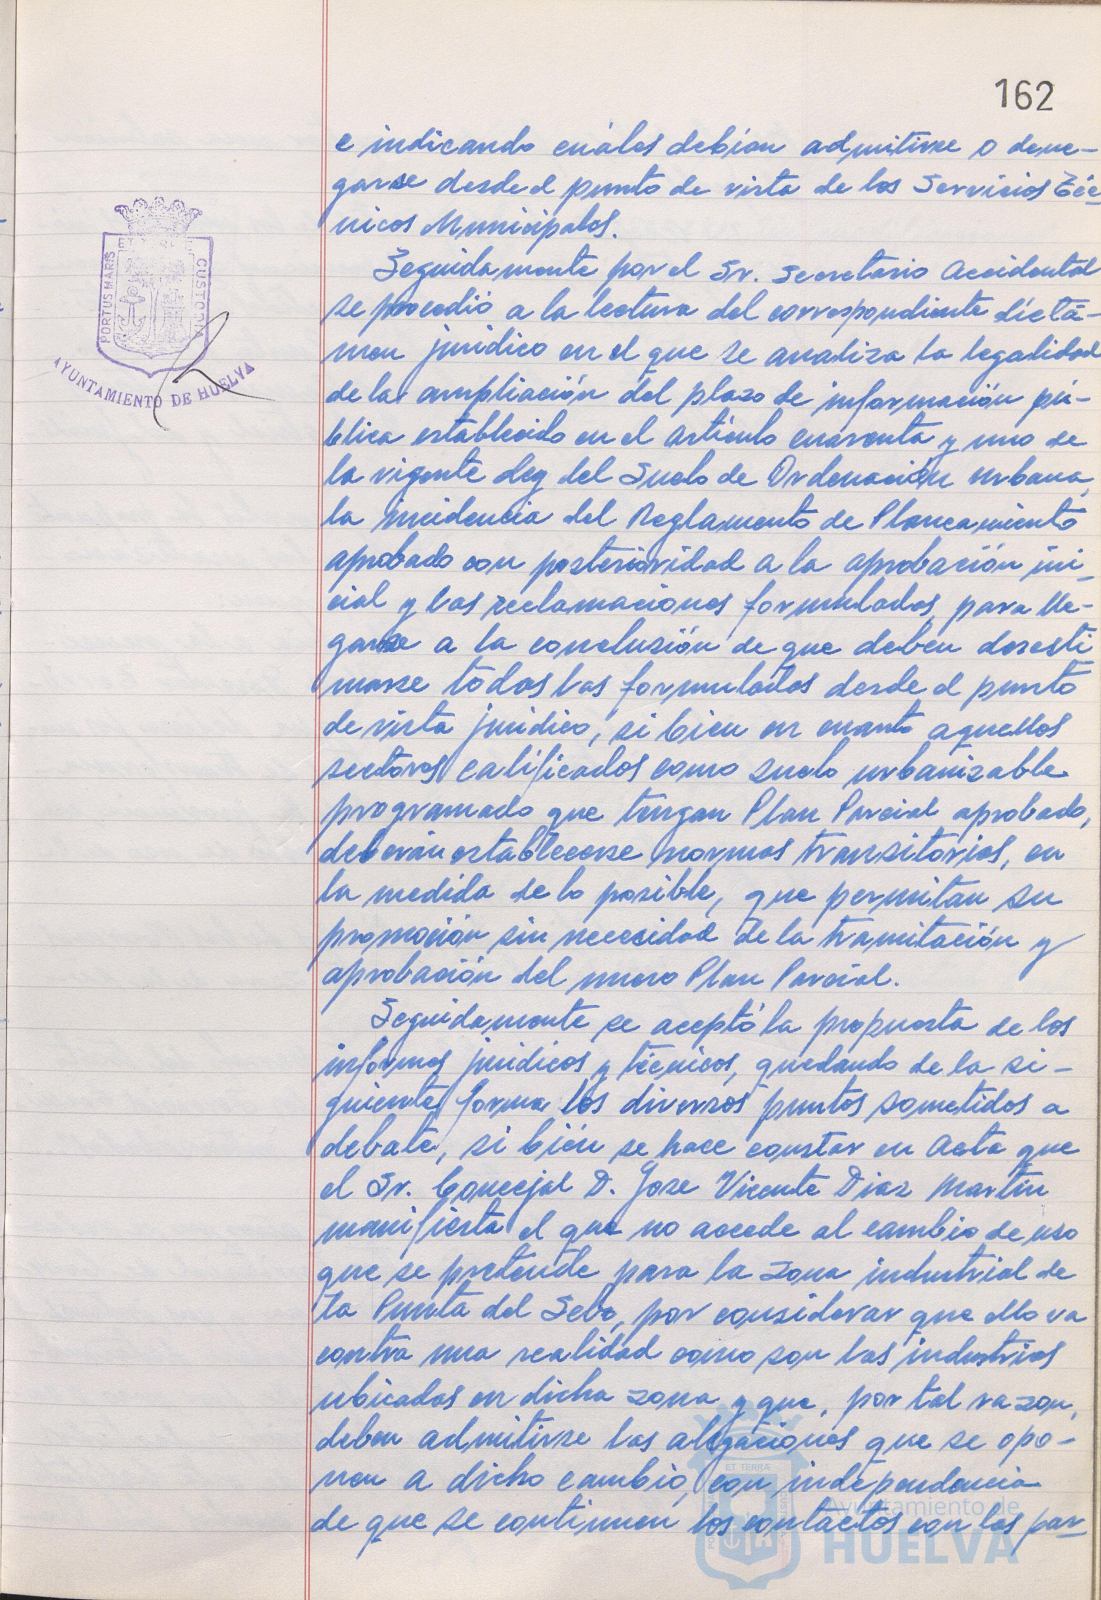 162
e indicando cuáles debían admitirse o dene-
garse desde el punto de vista de los Servicios Téc
nicos Municipales.
Seguidamente por el Sr. Secretario Accidental
se procedió a la lectura del correspondiente dictá-
men jurídico en el que se analiza la legalidad
de la ampliación del plazo de información pú-
blica establecido en el artículo cuarenta y uno de
la vigente Ley del Suelo de Ordenación Urbana,
la incidencia del Reglamento de Planeamiento
aprobado con posterioridad a la aprobación ini-
cial y las reclamaciones formuladas, para lle-
garse a la conclusión de que deben desesti
marse todas las formulados desde el punto
de vista jurídico, si bien en cuanto aquellos
sectores calificados como suelo urbanizable
programado que tengan Plan Parcial aprobado,
deberán establecerse normas transitorias, en
la medida de lo posible, que permitan su
promoción sin necesidad de la tramitación y
aprobación del nuevo Plan Parcial.
Seguidamente se aceptó la propuesta de los
informes jurídicos y técnicos, quedando de la si-
guiente forma los diversos puntos sometidos a
debate, si bién se hace constar en Acta que
el Sr. Concejal D. Jose Vicente Diaz Martin
manifiesta el que no accede al cambio de uso
que se pretende para la zona industrial de
la Punta del Sebo, por considerar que ello va
contra una realidad como son las industrias
ubicadas en dicha zona y que, por tal razon,
deben admitirse las alegaciones que se opo-
nen a dicho cambio, con independencia
de que se continuen los contactos con las par
PORTUS MARIS
CUSTODIA
AYUNTAMIENTO DE HUELVA
ET TERRÆ
Ayuntamiento de
HUELVA